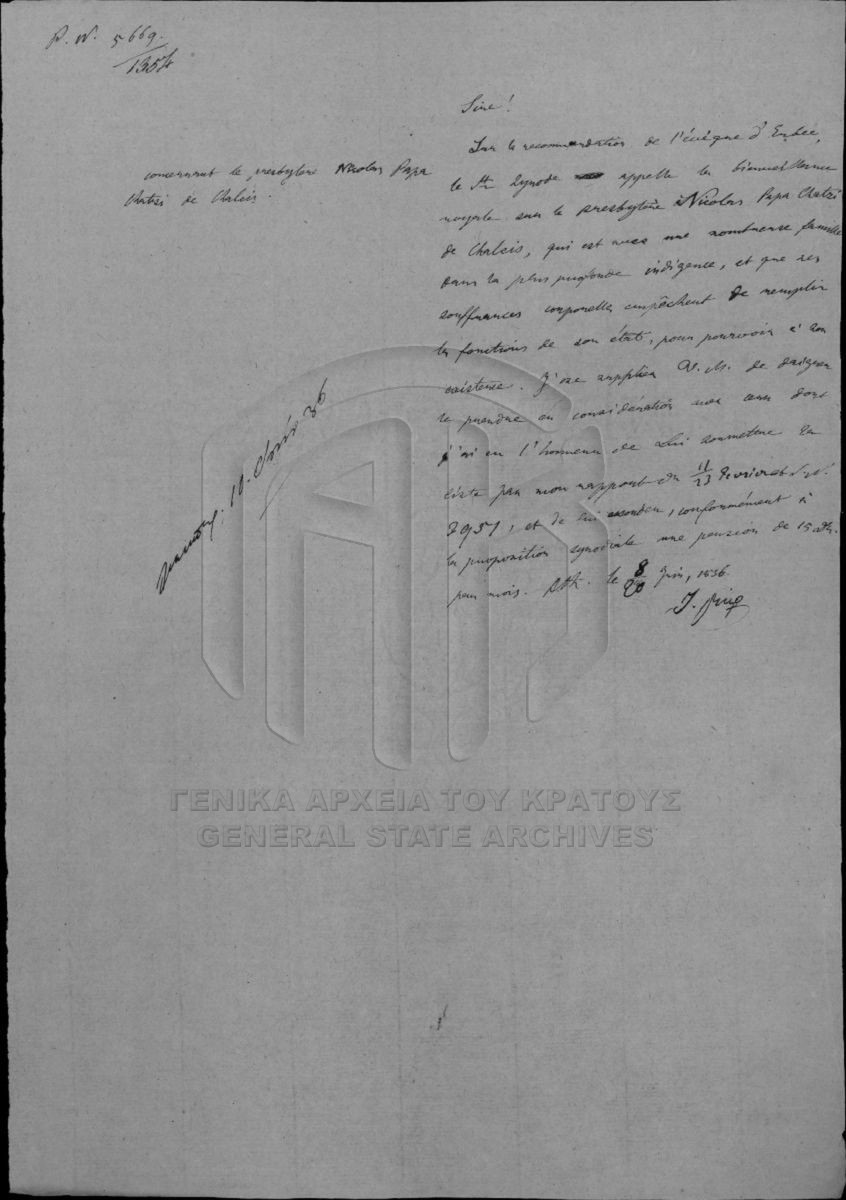 P. N. 5669.
1357
concernant le presbytère Nicolas Papa
Chatzi de Chalcis.
Sire!
Sur la recommendation de l'évêque d'Eubée,
le St Synode appelle la bienveillance
royale sur le presbytère Nicolas Papa Chatzi
de Chalcis, qui est avec une nombreuse famille
dans la plus profonde indigence, et que ses
souffrances corporelles empêchent de remplir
les fonctions de son état, pour pourvoir à son
existence. J'ose supplier V. M. de daigner
le prendre en considération avec ceux dont
j'ai eu l'honneur de Lui soumettre la
liste par mon rapport du 11/23 Fevrier
7951, et de lui accorder, conformément à
la proposition synodale une pension de 15 dr.
par mois. Ath. le 8/20 Juin, 1836.
10. 36
ΓΕΝΙΚΑ ΑΡΧΕΙΑ ΤΟΥ ΚΡΑΤΟΥΣ
GENERAL STATE ARCHIVES